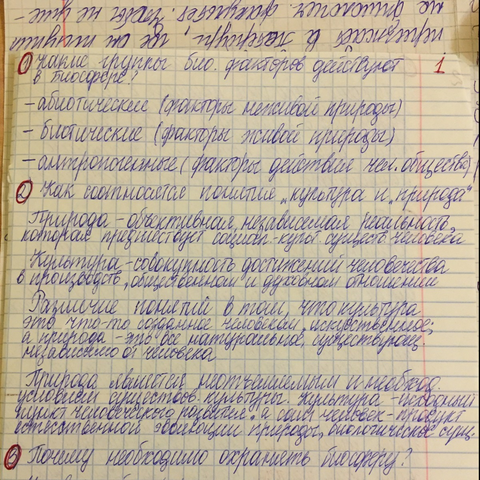 ① Какие группы био. факторов действуют 1
в биосфере?
– абиотические (факторы неживой природы)
– биотические (факторы живой природы)
– антропогенные (факторы действия чел. общества)
② Как соотносятся понятия „культура и „природа“
Природа – объективная, независимая реальность,
которая
Культура – совокупность достижений человечества
в производств., общественном и духовном отношении
Различие понятий в том, что культура
это что-то созданное человеком, искусственное;
а природа – это все натуральное, существующее
независимо от человека
Природа является неотъемлемым и необход.
условием существов. культуры. Культура – исходный
пункт человеческого развития а сам человек – продукт
естественной эволюции природы, биологическое сущ.
③ Почему необходимо охранять биосферу?